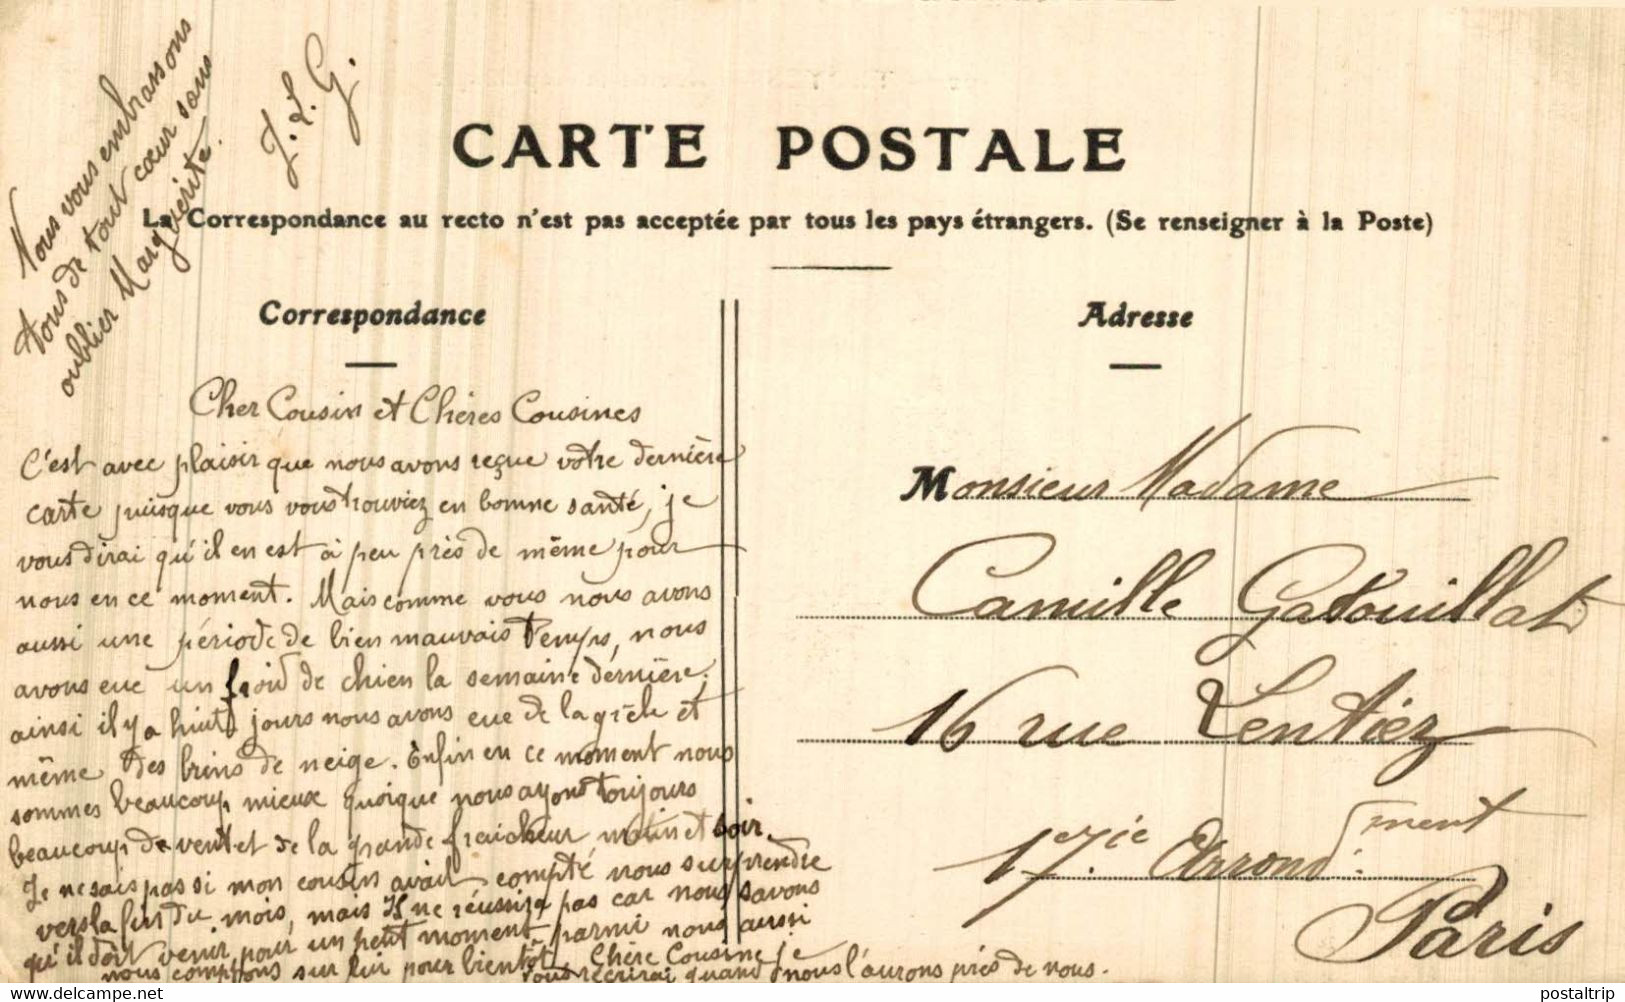 Nous vous embrassons
tous de tout cœur sans
oublier Marguerite.
J. L. G.
CARTE POSTALE
La Correspondance au recto n'est pas acceptée par tous les pays étrangers. (Se renseigner à la Poste)
Correspondance
Cher Cousin et Chères Cousines
C'est avec plaisir que nous avons reçue votre dernière
carte puisque vous vous trouviez en bonne santé, je
vous dirai qu'il en est à peu près de même pour
nous en ce moment. Mais comme vous nous avons
aussi une période de bien mauvais temps, nous
avons eue un froid de chien la semaine dernière;
ainsi il y a huit jours nous avons eue de la grêle et
même des brins de neige. Enfin en ce moment nous
sommes beaucoup mieux quoique nous ayons toujours
beaucoup de vent et de la grande fraicheur, matin et soir.
Je ne sais pas si mon cousin avait compté nous surprendre
vers la fin du mois, mais il ne réussira pas car nous savons
qu'il doit venir pour un petit moment parmi nous aussi
nous comptons sur lui pour bientôt. Chère Cousine je
vous récrirai quand nous l'aurons près de nous.
Adresse
Monsieur Madame
Camille Gatouillat
16 rue Lentiez
17.ie Arrond.ment
Paris
www.delcampe.net
postaltrip